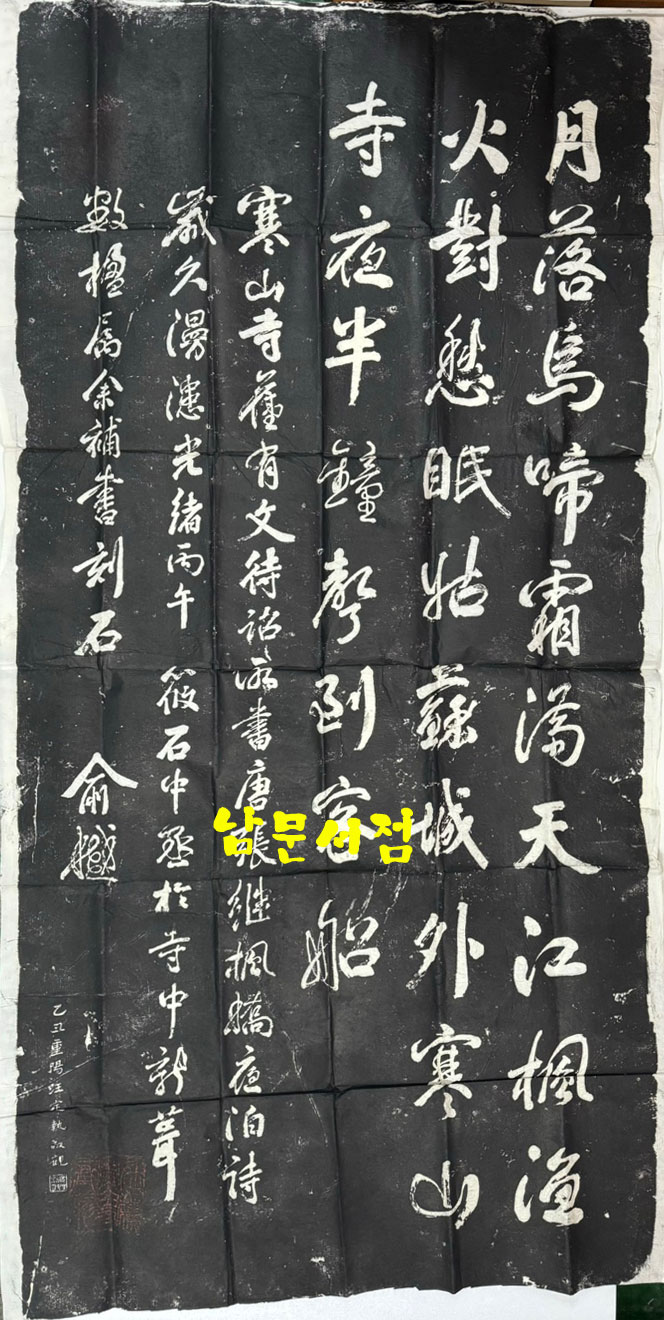 月落烏啼霜滿天江楓漁
火對愁眠姑蘇城外寒山
寺夜半鐘聲到客船
寒山寺舊有文待詔所書唐張継楓橋夜泊詩
歲久漫漶光緒丙午 筱石中丞於寺中新葺
數楹屬余補書刻石 俞樾
乙丑重陽汪 敬觀
남문서점